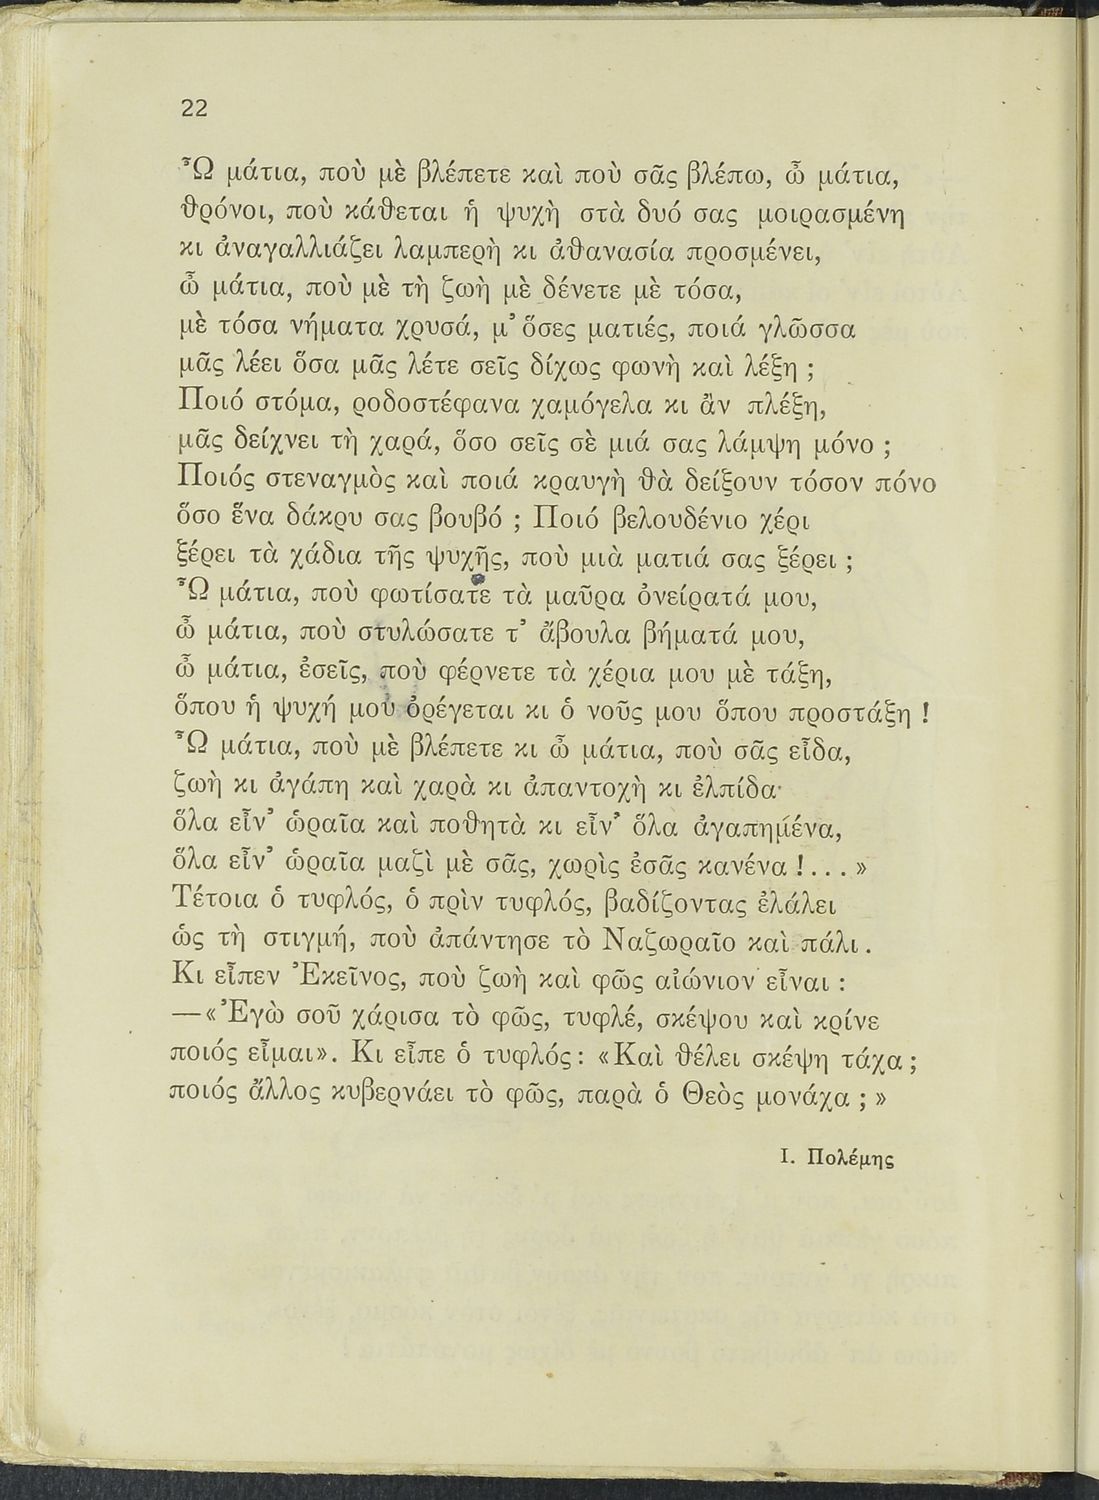 22
Ὦ μάτια, ποὺ μὲ βλέπετε καὶ ποὺ σᾶς βλέπω, ὦ μάτια,
θρόνοι, ποὺ κάθεται ἡ ψυχὴ στὰ δυό σας μοιρασμένη
κι ἀναγαλλιάζει λαμπερὴ κι ἀθανασία προσμένει,
ὦ μάτια, ποὺ μὲ τὴ ζωὴ μὲ δένετε μὲ τόσα,
μὲ τόσα νήματα χρυσά, μ᾿ ὅσες ματιές, ποιά γλῶσσα
μᾶς λέει ὅσα μᾶς λέτε σεῖς δίχως φωνὴ καὶ λέξη ;
Ποιό στόμα, ροδοστέφανα χαμόγελα κι ἂν πλέξη,
μᾶς δείχνει τὴ χαρά, ὅσο σεῖς σὲ μιά σας λάμψη μόνο ;
Ποιός στεναγμὸς καὶ ποιά κραυγὴ θὰ δείξουν τόσον πόνο
ὅσο ἕνα δάκρυ σας βουβό ; Ποιό βελουδένιο χέρι
ξέρει τὰ χάδια τῆς ψυχῆς, ποὺ μιὰ ματιά σας ξέρει ;
Ὦ μάτια, ποὺ φωτίσατε τὰ μαῦρα ὀνείρατά μου,
ὦ μάτια, ποὺ στυλώσατε τ᾿ ἄβουλα βήματά μου,
ὦ μάτια, ἐσεῖς, ποὺ φέρνετε τὰ χέρια μου μὲ τάξη,
ὅπου ἡ ψυχή μου ὀρέγεται κι ὁ νοῦς μου ὅπου προστάξη !
Ὦ μάτια, ποὺ μὲ βλέπετε κι ὦ μάτια, ποὺ σᾶς εἶδα,
ζωὴ κι ἀγάπη καὶ χαρὰ κι ἀπαντοχὴ κι ἐλπίδα·
ὅλα εἶν᾿ ὡραῖα καὶ ποθητὰ κι εἶν᾿ ὅλα ἀγαπημένα,
ὅλα εἶν᾿ ὡραῖα μαζὶ μὲ σᾶς, χωρὶς ἐσᾶς κανένα !... »
Τέτοια ὁ τυφλός, ὁ πρὶν τυφλός, βαδίζοντας ἐλάλει
ὡς τὴ στιγμή, ποὺ ἀπάντησε τὸ Ναζωραῖο καὶ πάλι.
Κι εἶπεν Ἐκεῖνος, ποὺ ζωὴ καὶ φῶς αἰώνιον εἶναι :
—«Ἐγὼ σοῦ χάρισα τὸ φῶς, τυφλέ, σκέψου καὶ κρίνε
ποιός εἶμαι». Κι εἶπε ὁ τυφλός: «Καὶ θέλει σκέψη τάχα ;
ποιός ἄλλος κυβερνάει τὸ φῶς, παρὰ ὁ Θεὸς μονάχα ; »
Ι. Πολέμης